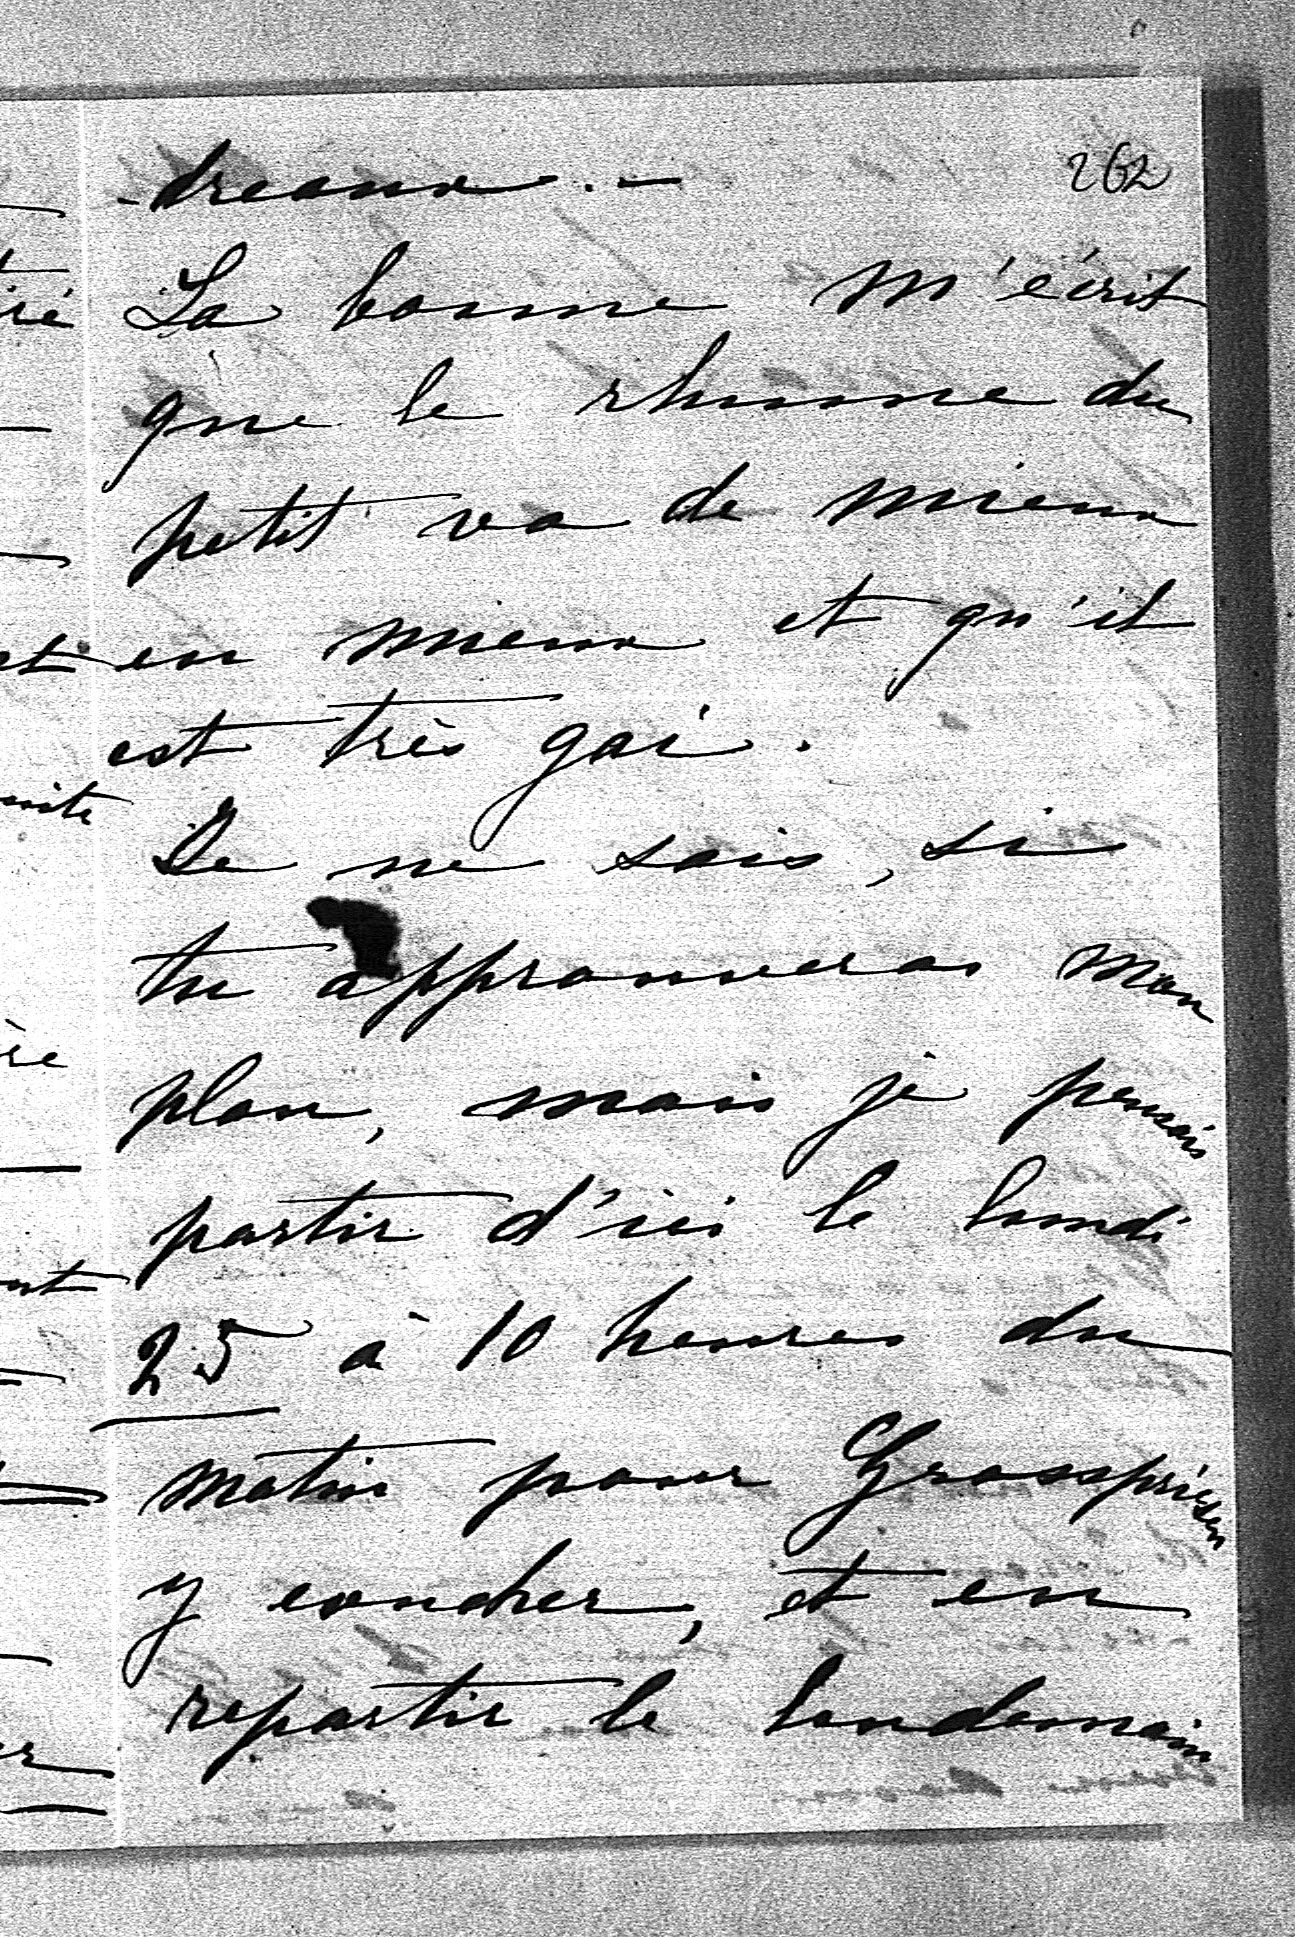 262
-dreaux. -
La bonne m'écrit
que le rhume du
petit va de mieux
en mieux et qu'il
est très gai.
Je ne sais, si
tu approuveras mon
plan, mais je pensais
partir d'ici le lundi
25 à 10 heures du
matin pour Grosspriesen
y coucher, et en
repartir le lendemain